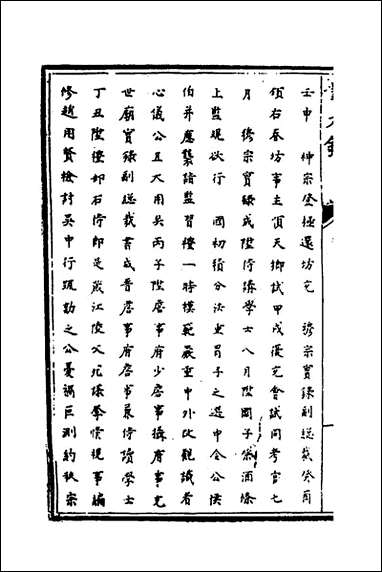 壬申　神宗登極還坊充　穆宗實錄副總裁癸酉
領右春坊事主順天鄉試甲戌復充會試同考官七
月　穆宗實錄成陞侍講學士八月陞國子祭酒條
上監規欲行　國初積分法重胄子之選申令公侯
伯并應襲諸監習禮一時模範嚴重中外改觀識者
心儀公且大用矣丙子陞詹事府少詹事攝府事充
世廟實錄副總裁書成晉詹事府詹事兼侍讀學士
丁丑陞禮部右侍郎是歲江陵父死謀奪情視事編
修趙用賢檢討吳中行疏劾之公憂禍叵測約秩宗